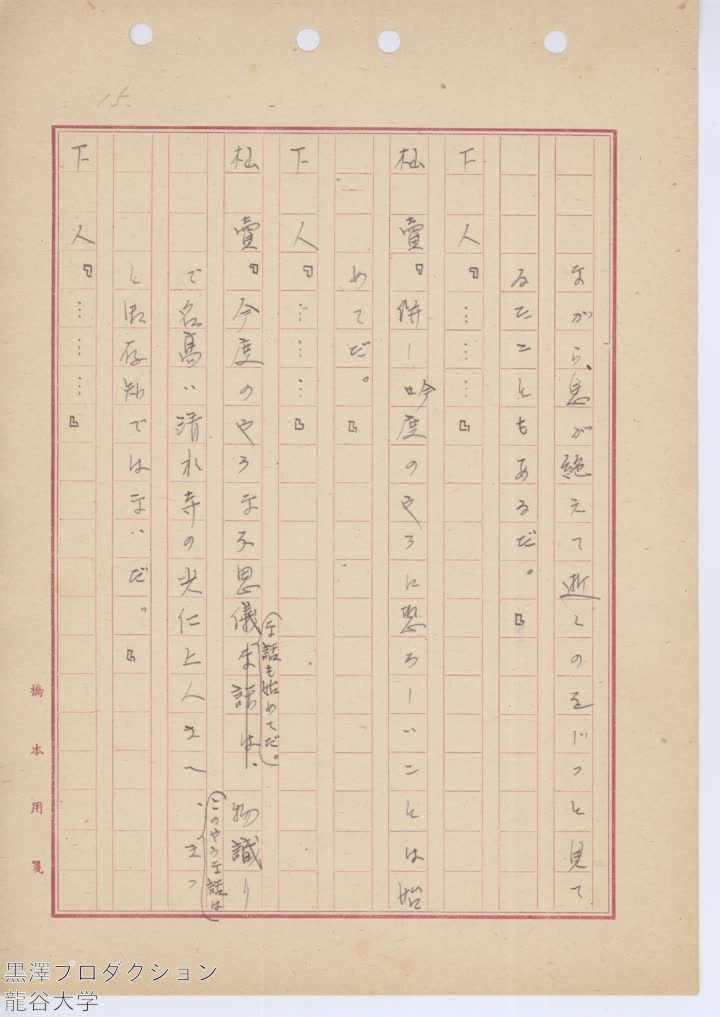 15.
ながら、息が絶えて逝くのをじっと見て
ゐたこともあるだ。』
下 人『………』
杣 賣『併し今度のやうに恐ろしいことは始
めてだ。』
下 人『………』
杣 賣『今度のやうな不思儀な話は、物識り
(な話も始めてだ。
で名高い清水寺の光仁上人さへ、きっ
(このやうな話は
と御存知ではないだ。』
下 人『………』
橋本用箋
黒澤プロダクション
龍谷大学